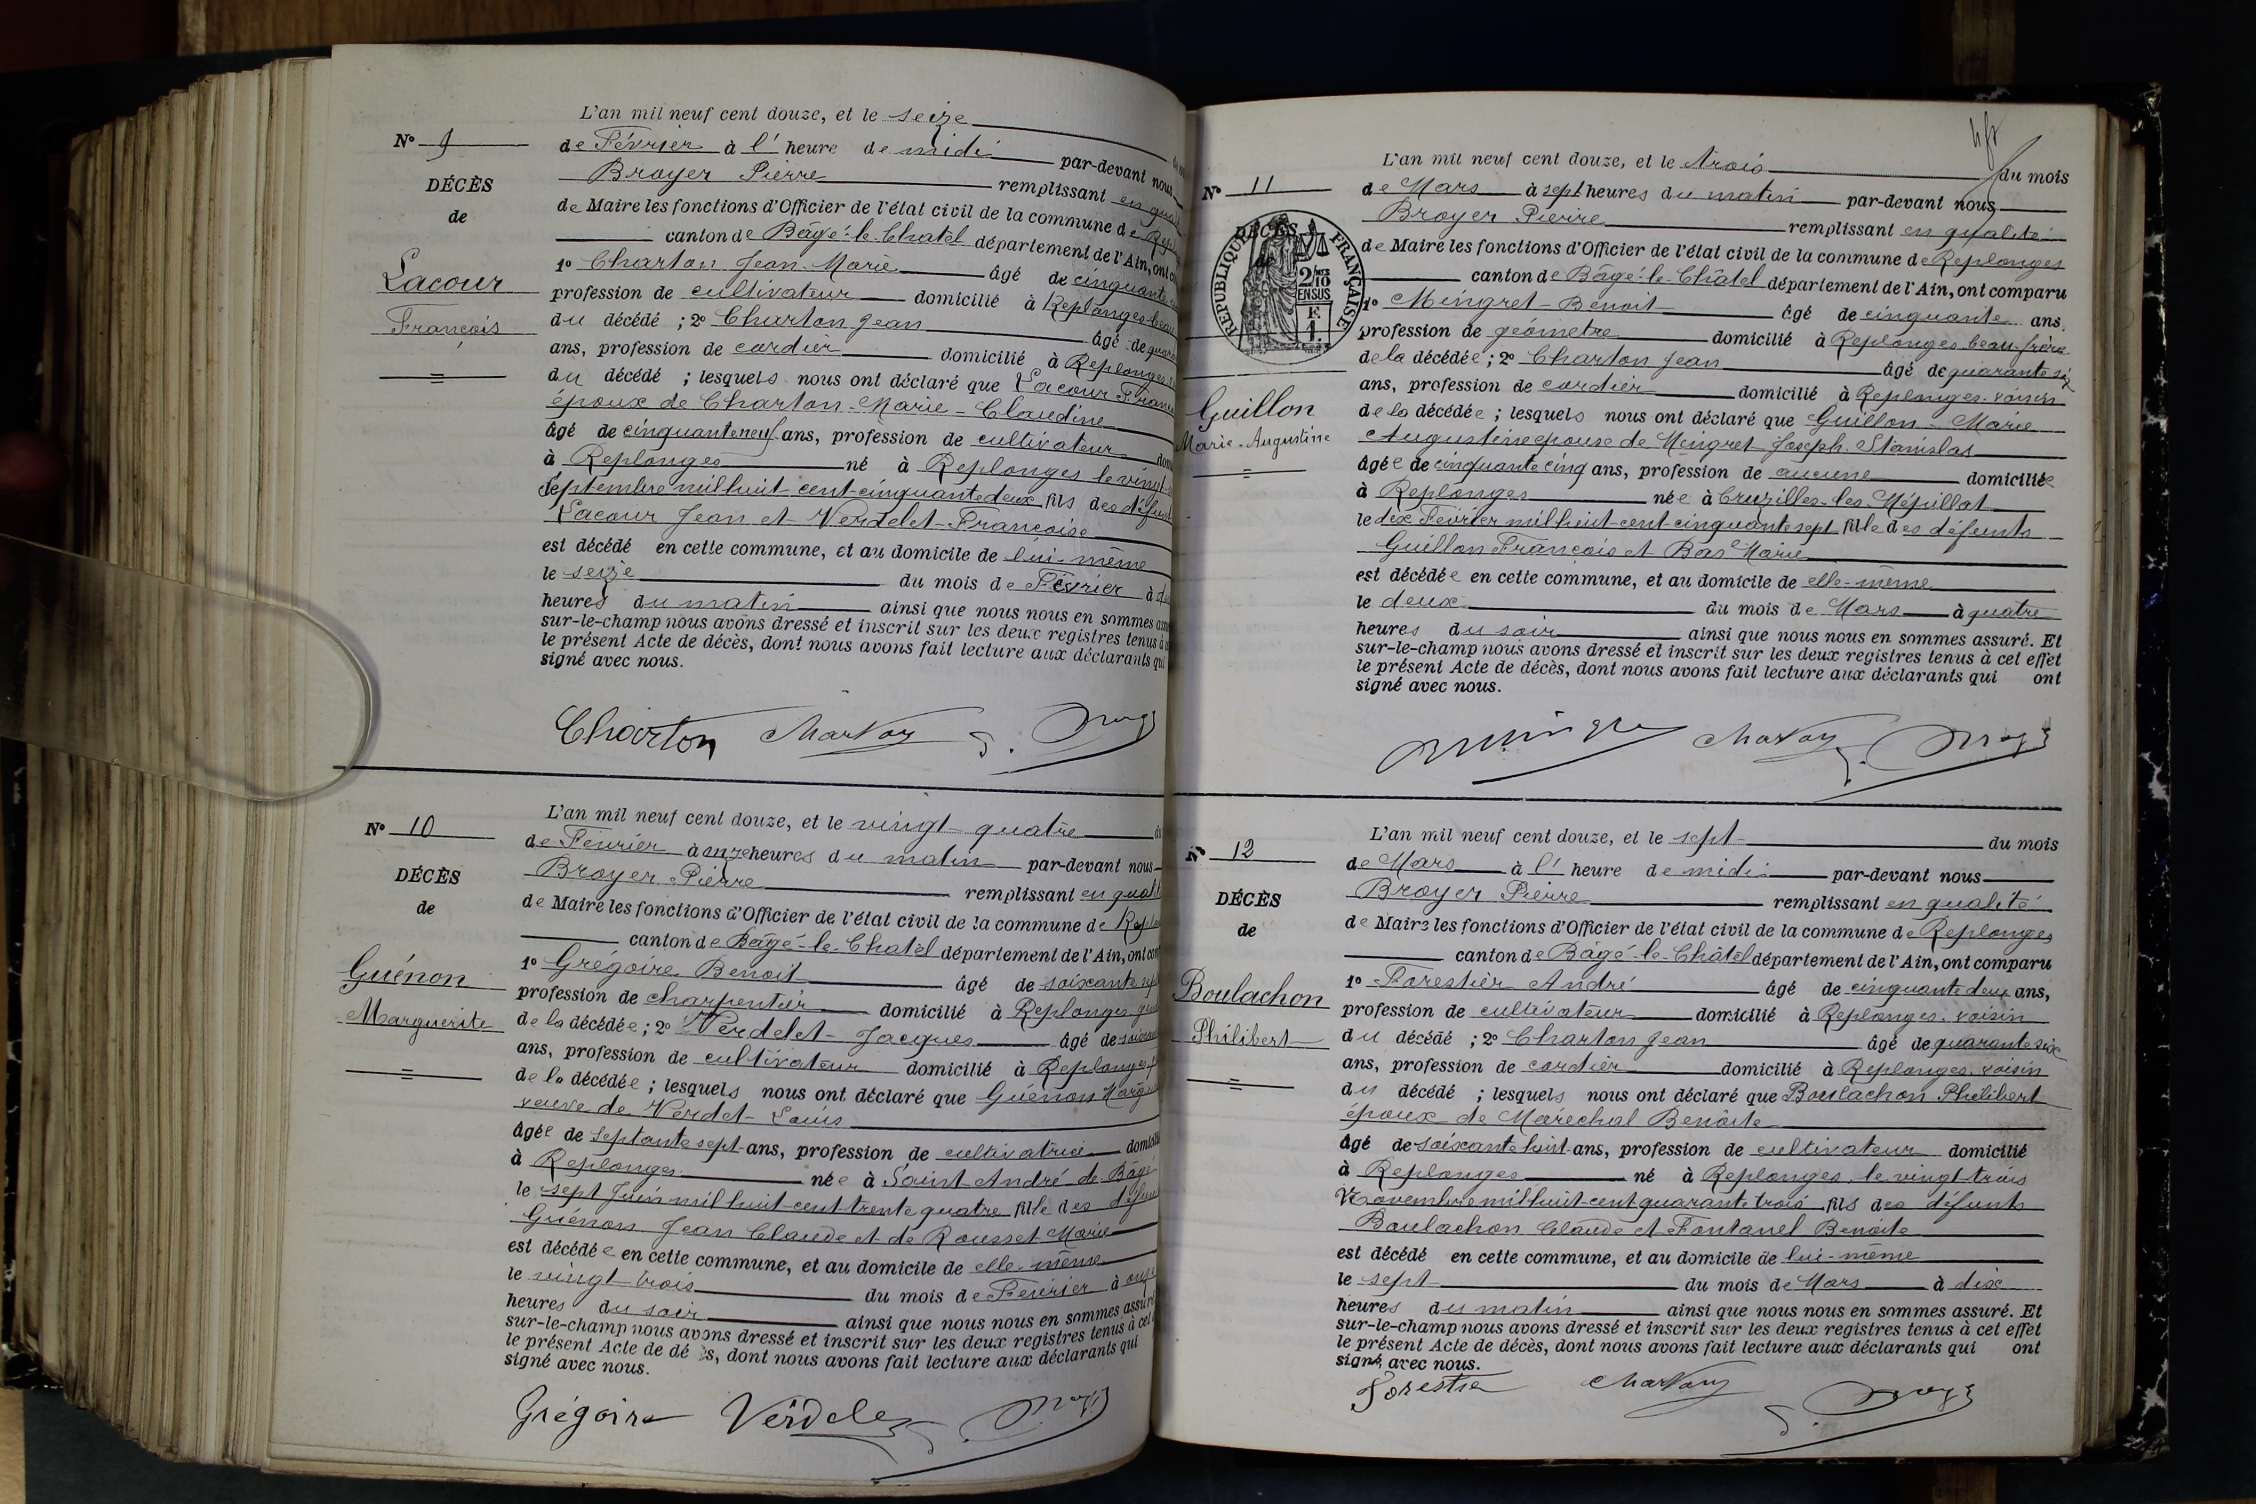 L'an mil neuf cent douze, et le seize
N° 9
de Février à l' heure de midi par-devant nous
Broyer Pierre remplissant en
DÉCÈS
de
de Maire les fonctions d'Officier de l'état civil de la commune de
canton de Bâgé-le-Chatel département de l'Ain, ont
Lacour
François
1° Charton Jean-Marie âgé de cinquante
profession de cultivateur domicilié à Replonges
du décédé ; 2° Charton Jean âgé de
ans, profession de cordier domicilié à Replonges
du décédé ; lesquels nous ont déclaré que Lacour
époux de Charton-Marie-Claudine
âgé de cinquante neuf ans, profession de cultivateur
à Replonges né à Replonges le vingt
Septembre mil huit cent cinquante deux fils des
Lacour Jean et Verdelet Françoise
est décédé en cette commune, et au domicile de lui-même
le seize du mois de Février à
heures du matin ainsi que nous nous en sommes
sur-le-champ nous avons dressé et inscrit sur les deux registres tenus à
le présent Acte de décès, dont nous avons fait lecture aux déclarants qui
signé avec nous.
Charton
L'an mil neuf cent douze, et le vingt quatre
N° 10
de Février à onze heures du matin par-devant nous
Broyer Pierre remplissant en
DÉCÈS
de
de Maire les fonctions d'Officier de l'état civil de la commune de
canton de Bâgé-le-Chatel département de l'Ain, ont
Guénon
Marguerite
1° Grégoire Benoit âgé de soixante
profession de charpentier domicilié à Replonges
de la décédée ; 2° Verdelet Jacques âgé de
ans, profession de cultivateur domicilié à Replonges
de la décédée ; lesquels nous ont déclaré que Guénon
veuve de Verdet Louis
âgée de septante sept ans, profession de cultivatrice
à Replonges née à Saint André de Bâgé
le sept Juin mil huit cent trente quatre fille des
Guénon Jean Claude et de Rousset Marie
est décédée en cette commune, et au domicile de elle-même
le vingt trois du mois de Février à onze
heures du soir ainsi que nous nous en sommes
sur-le-champ nous avons dressé et inscrit sur les deux registres tenus à cet
le présent Acte de décès, dont nous avons fait lecture aux déclarants qui
signé avec nous.
Grégoire Verdele
L'an mil neuf cent douze, et le trois du mois
N° 11
de Mars à sept heures du matin par-devant nous
Broyer Pierre remplissant en qualité
DÉCÈS
RÉPUBLIQUE FRANÇAISE
2/10 EN SUS
F
1.
de Maire les fonctions d'Officier de l'état civil de la commune de Replonges
canton de Bâgé-le-Châtel département de l'Ain, ont comparu
1° Mingret-Benoit âgé de cinquante ans,
profession de géomètre domicilié à Replonges beau-frère
de la décédée ; 2° Charton Jean âgé de quarante six
ans, profession de cordier domicilié à Replonges voisin
Guillon
Marie-Augustine
de la décédée ; lesquels nous ont déclaré que Guillon Marie
Augustine epouse de Mingret Joseph Stanislas
âgée de cinquante cinq ans, profession de aucune domiciliée
à Replonges née à Cruzilles-les-Mépillat
le dix Février mil huit cent cinquante sept fille des défunts
Guillon François et Bas Marie
est décédée en cette commune, et au domicile de elle-même
le deux du mois de Mars à quatre
heures du soir ainsi que nous nous en sommes assuré. Et
sur-le-champ nous avons dressé et inscrit sur les deux registres tenus à cet effet
le présent Acte de décès, dont nous avons fait lecture aux déclarants qui ont
signé avec nous.
L'an mil neuf cent douze, et le sept du mois
N° 12
de Mars à l' heure de midi par-devant nous
Broyer Pierre remplissant en qualité
DÉCÈS
de
de Maire les fonctions d'Officier de l'état civil de la commune de Replonges
canton de Bâgé-le-Châtel département de l'Ain, ont comparu
Boulachon
Philibert
1° Forestier André âgé de cinquante deux ans,
profession de cultivateur domicilié à Replonges, voisin
du décédé ; 2° Charton Jean âgé de quarante six
ans, profession de cordier domicilié à Replonges, voisin
du décédé ; lesquels nous ont déclaré que Boulachon Philibert
époux de Maréchal Benoite
âgé de soixante huit ans, profession de cultivateur domicilié
à Replonges né à Replonges, le vingt trois
Novembre mil huit cent quarante trois fils des défunts
Boulachon Claude et Fontanel Benoite
est décédé en cette commune, et au domicile de lui-même
le sept du mois de Mars à dix
heures du matin ainsi que nous nous en sommes assuré. Et
sur-le-champ nous avons dressé et inscrit sur les deux registres tenus à cet effet
le présent Acte de décès, dont nous avons fait lecture aux déclarants qui ont
signé avec nous.